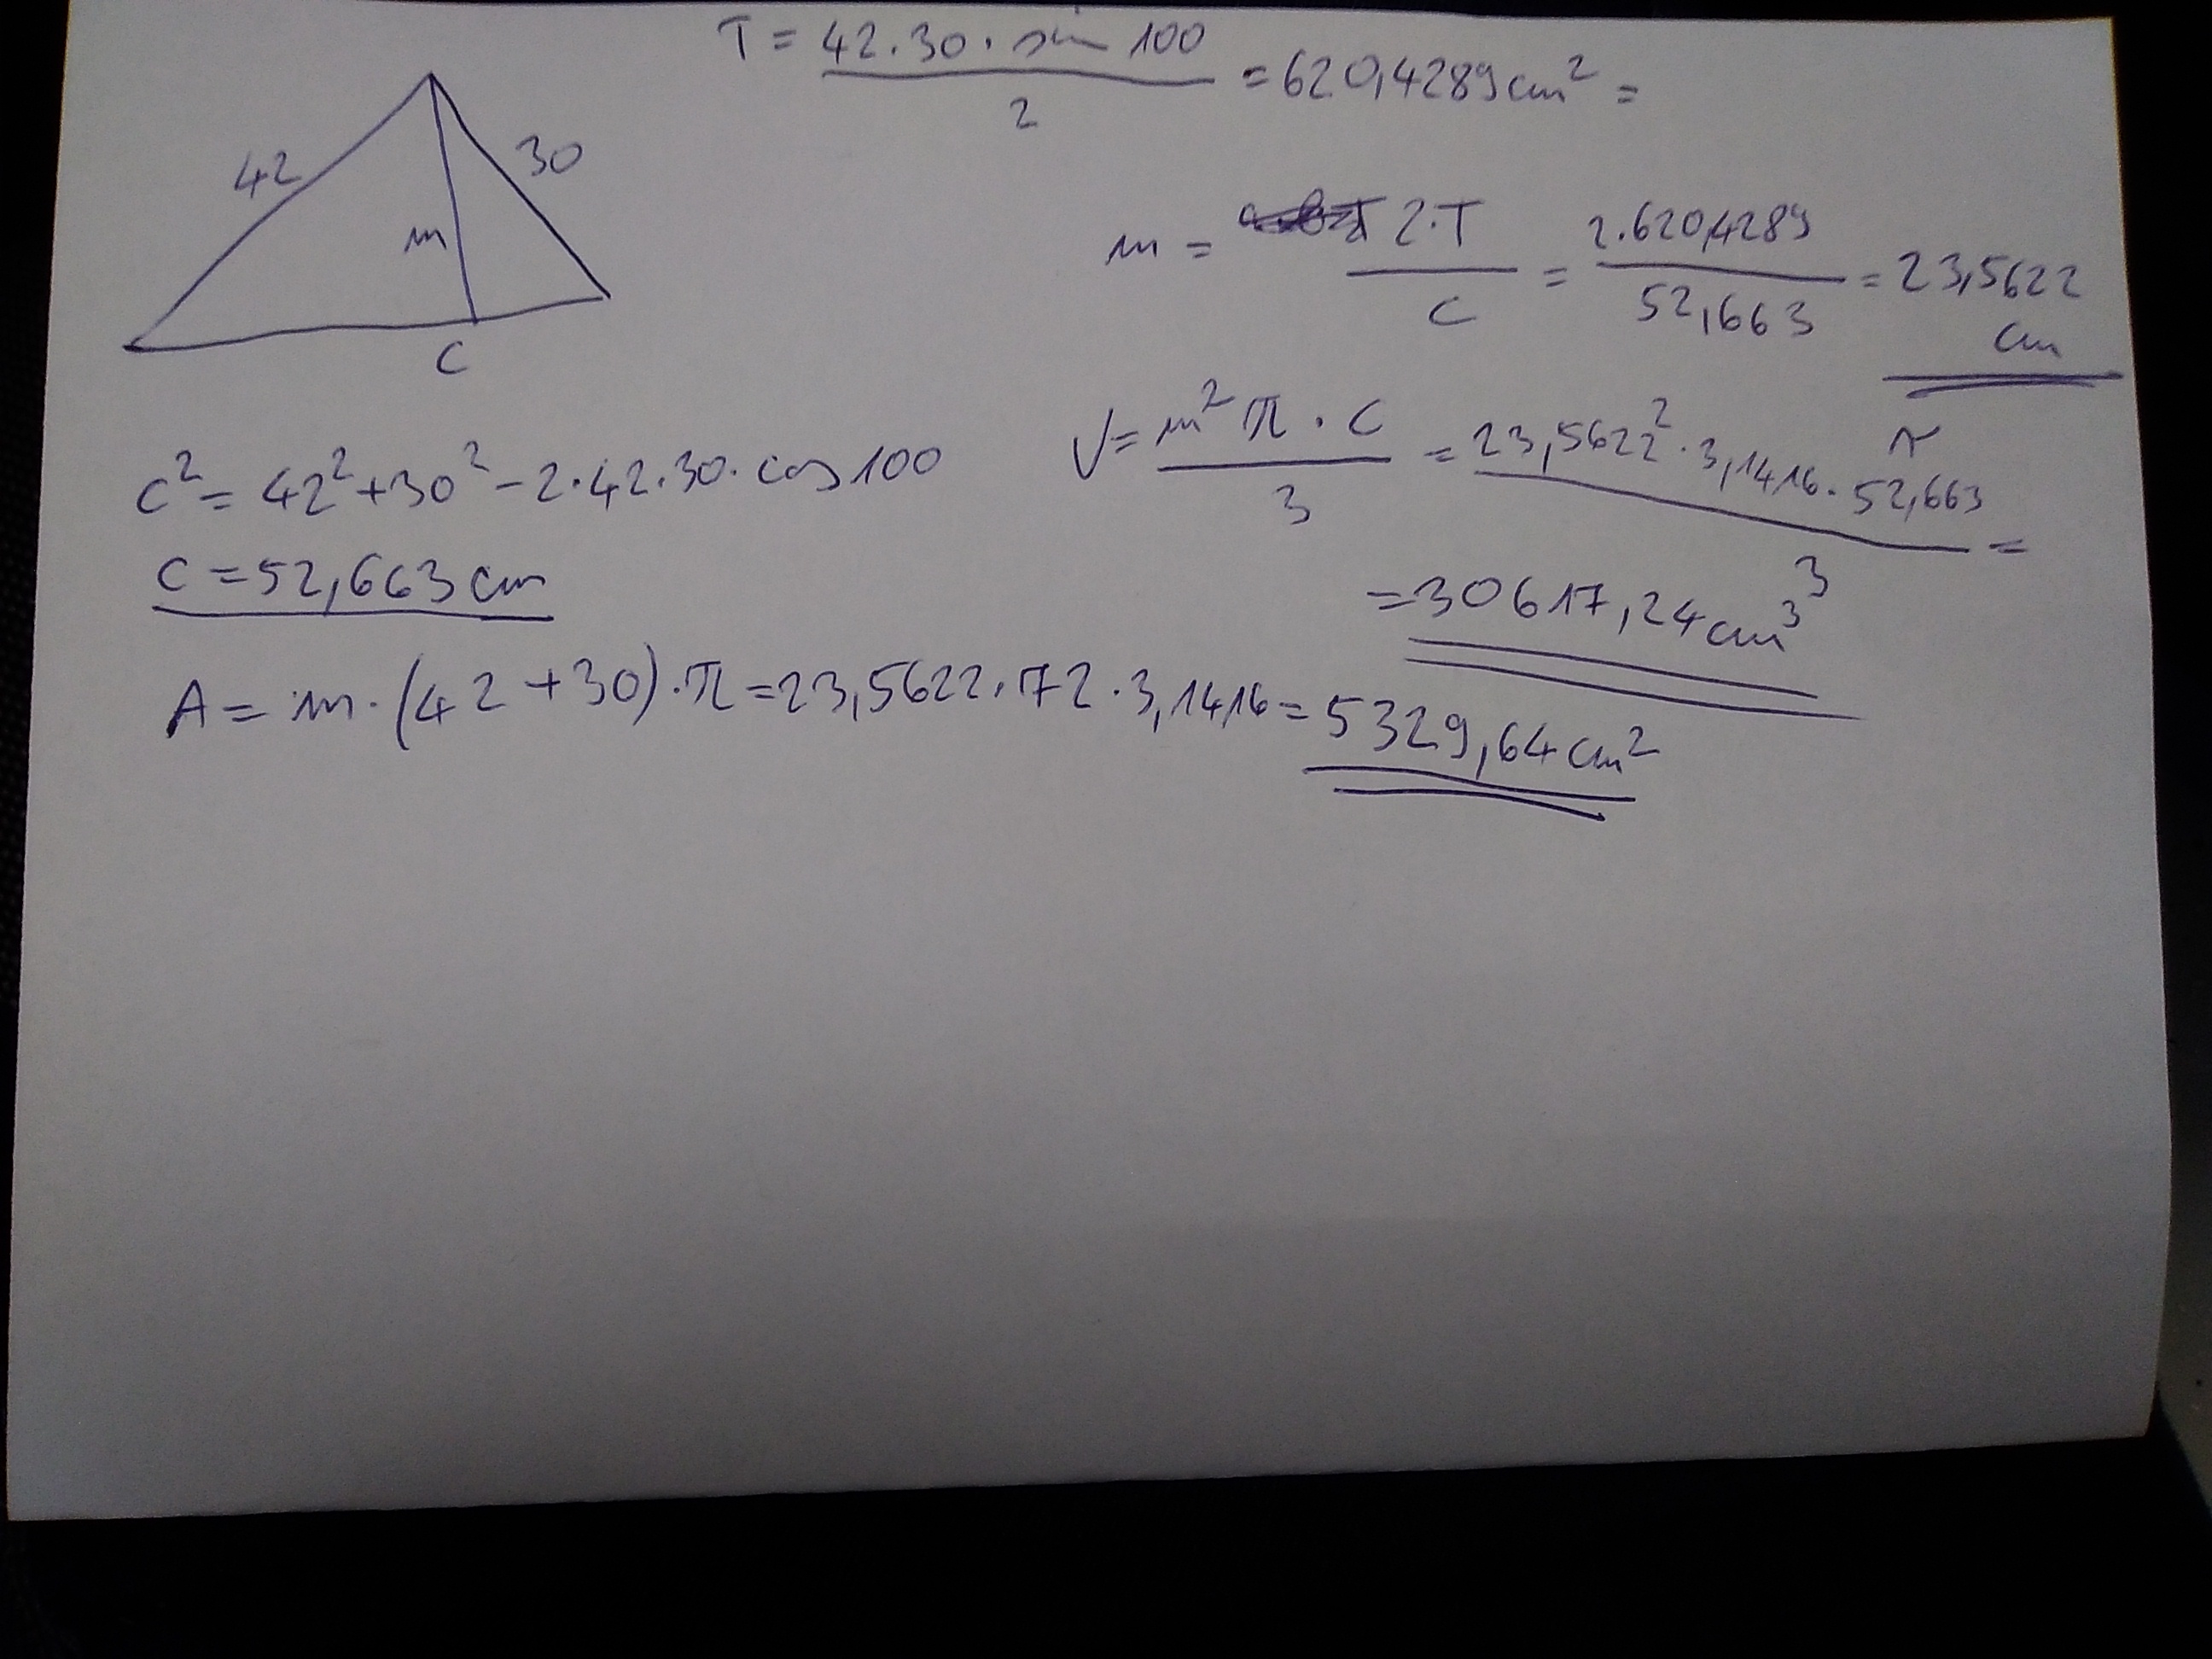 T = 42.30. sin 100 / 2 = 620,4289 cm² =
42
30
m
c
m = 2.T / c = 2.620,4289 / 52,663 = 23,5622 cm
c² = 42² + 30² - 2.42.30. cos 100
c = 52,663 cm
V = m² π . c / 3 = 23,5622² . 3,1416 . 52,663 =
= 30617,24 cm³ 3
A = m. (42 + 30) . π = 23,5622. 72 . 3,1416 = 5329,64 cm²